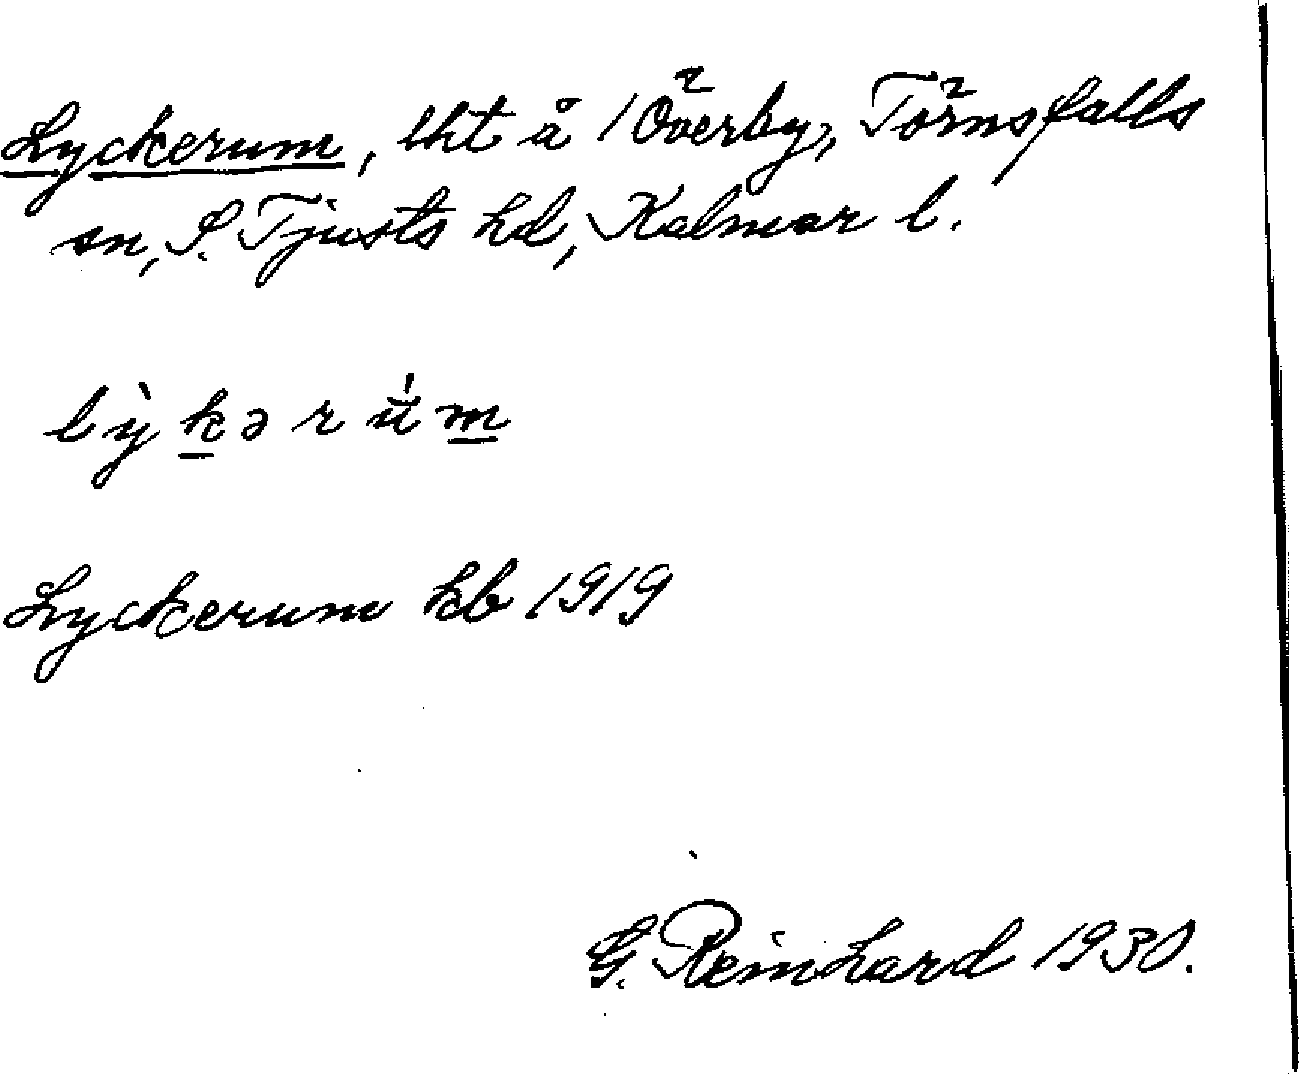 Lyckerum, lht å 1 Överby, Törnsfalls
sn, S. Tjusts hd, Kalmar l.
lỳkərúm
Lyckerum kb 1919
G. Reinhard 1930.